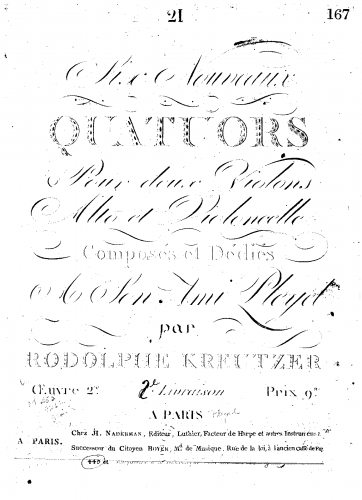 21 167
Six Nouveaux
QUATUORS
Pour deux Violons
Alto et Violoncelle
Composés et Dédiés
A Son Ami Pleyel
par
RODOLPHE KREUTZER
Œuvre 2.e 2.e Livraison Prix 9.tt
A PARIS
A PARIS. Chez JH. NADERMAN, Editeur, Luthier, Facteur de Harpe et autres Instrumens
Successeur du Citoyen BOYER, M.d de Musique, Rue de la loi, à l'ancien café de
445 et